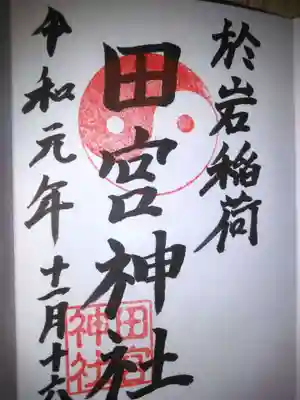 於岩稲荷
田宮神社
令和元年十一月十六
田宮
神社